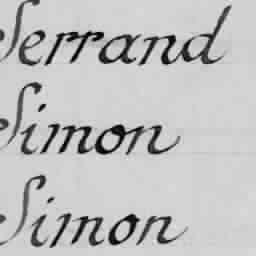 Serrand
Simon
Simon